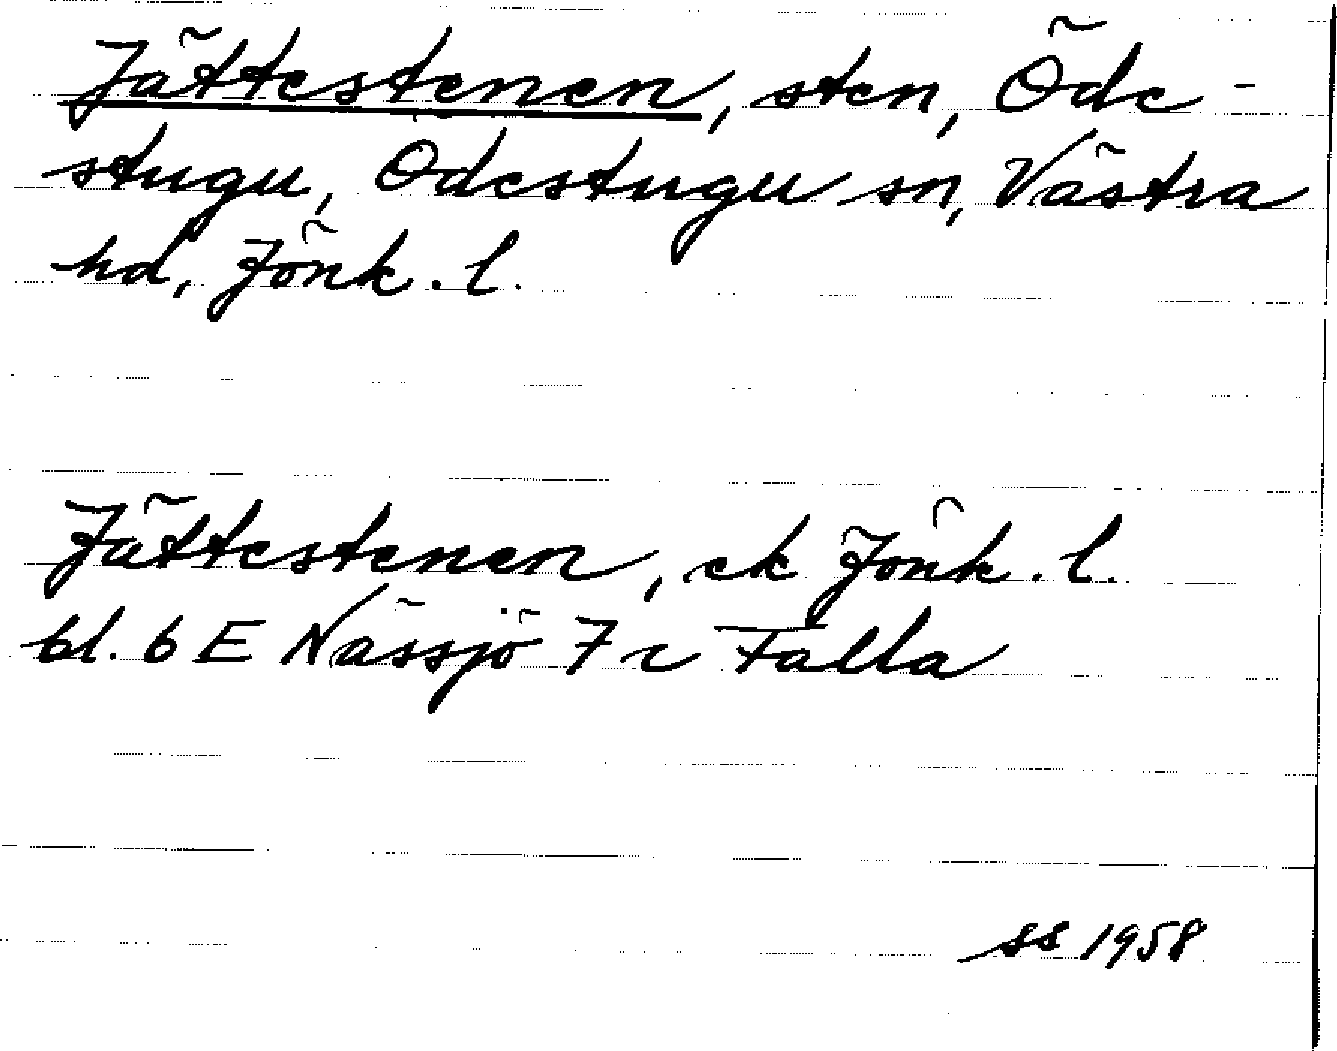 Jättestenen, sten, Öde-
stugu, Ödestugu sn, Västra
hd, Jönk. l.
Jättestenen, ek Jönk. l.
bl. 6 E Nässjö 7 c Falla
SS 1958